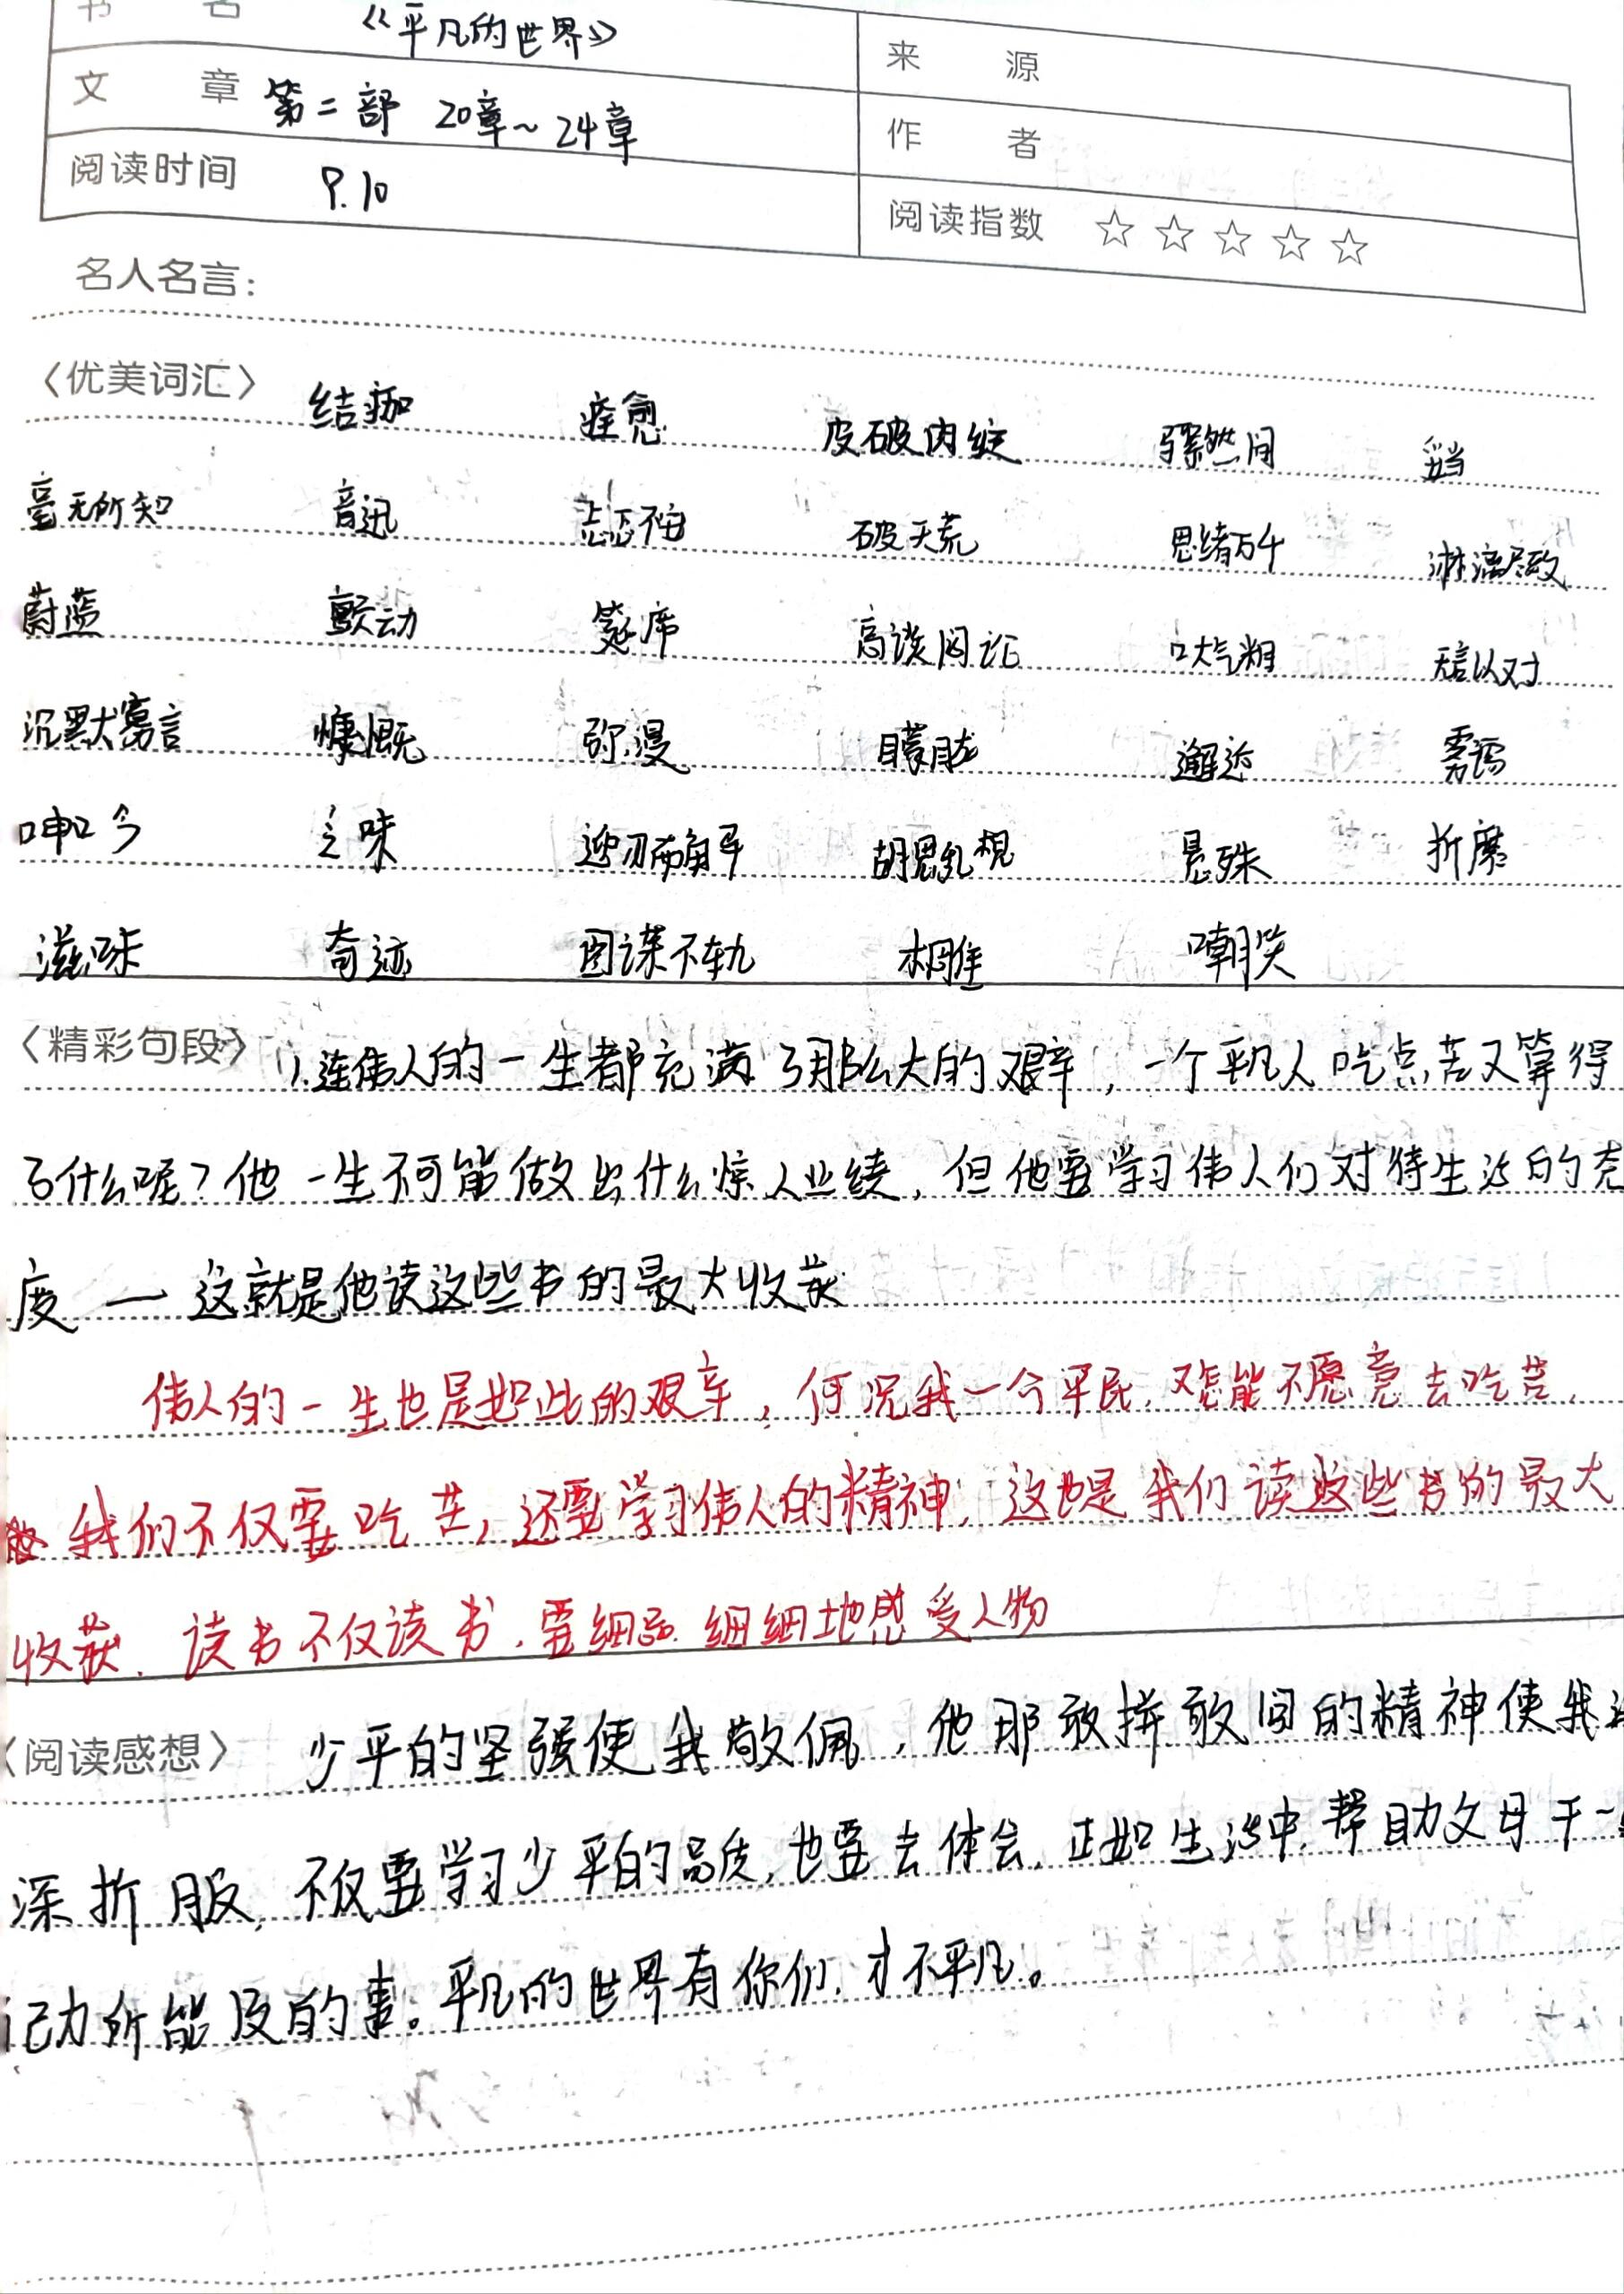 书 名 《平凡的世界》 来 源
文 章 第二部 20章~24章 作 者
阅读时间 9.10 阅读指数 ☆☆☆☆☆
名人名言:
〈优美词汇〉 结痂 痊愈 皮破肉绽 骤然间
毫无所知 音迅 忐忑不安 破天荒 思绪万千 淋漓尽致
蔚蓝 颤动 筵席 高谈阔论 口大气粗 无言以对
沉默寡言 慷慨 弥漫 朦胧 邂逅 雾霭
呻吟 乏味 迎刃而解 胡思乱想 悬殊 折磨
滋味 奇迹 图谋不轨 嘲笑
〈精彩句段〉 1.连伟人的一生都充满了那么大的艰辛，一个平凡人吃点苦又算得
了什么呢？他一生不可能做出什么惊人业绩，但他要学习伟人们对待生活的态
度 — 这就是他读这些书的最大收获
伟人的一生也是如此的艰辛，何况我一个平民，又怎能不愿意去吃苦，
我们不仅要吃苦，还要学习伟人的精神，这也是我们读这些书的最大
收获，读书不仅读书，要细品，细细地感受人物
〈阅读感想〉 少平的坚强使我敬佩，他那敢拼敢闯的精神使我深
深折服，不仅要学习少平的品质，也要去体会，正如生活中，帮助父母干一些
己力所能及的事。平凡的世界有你们，才不平凡。